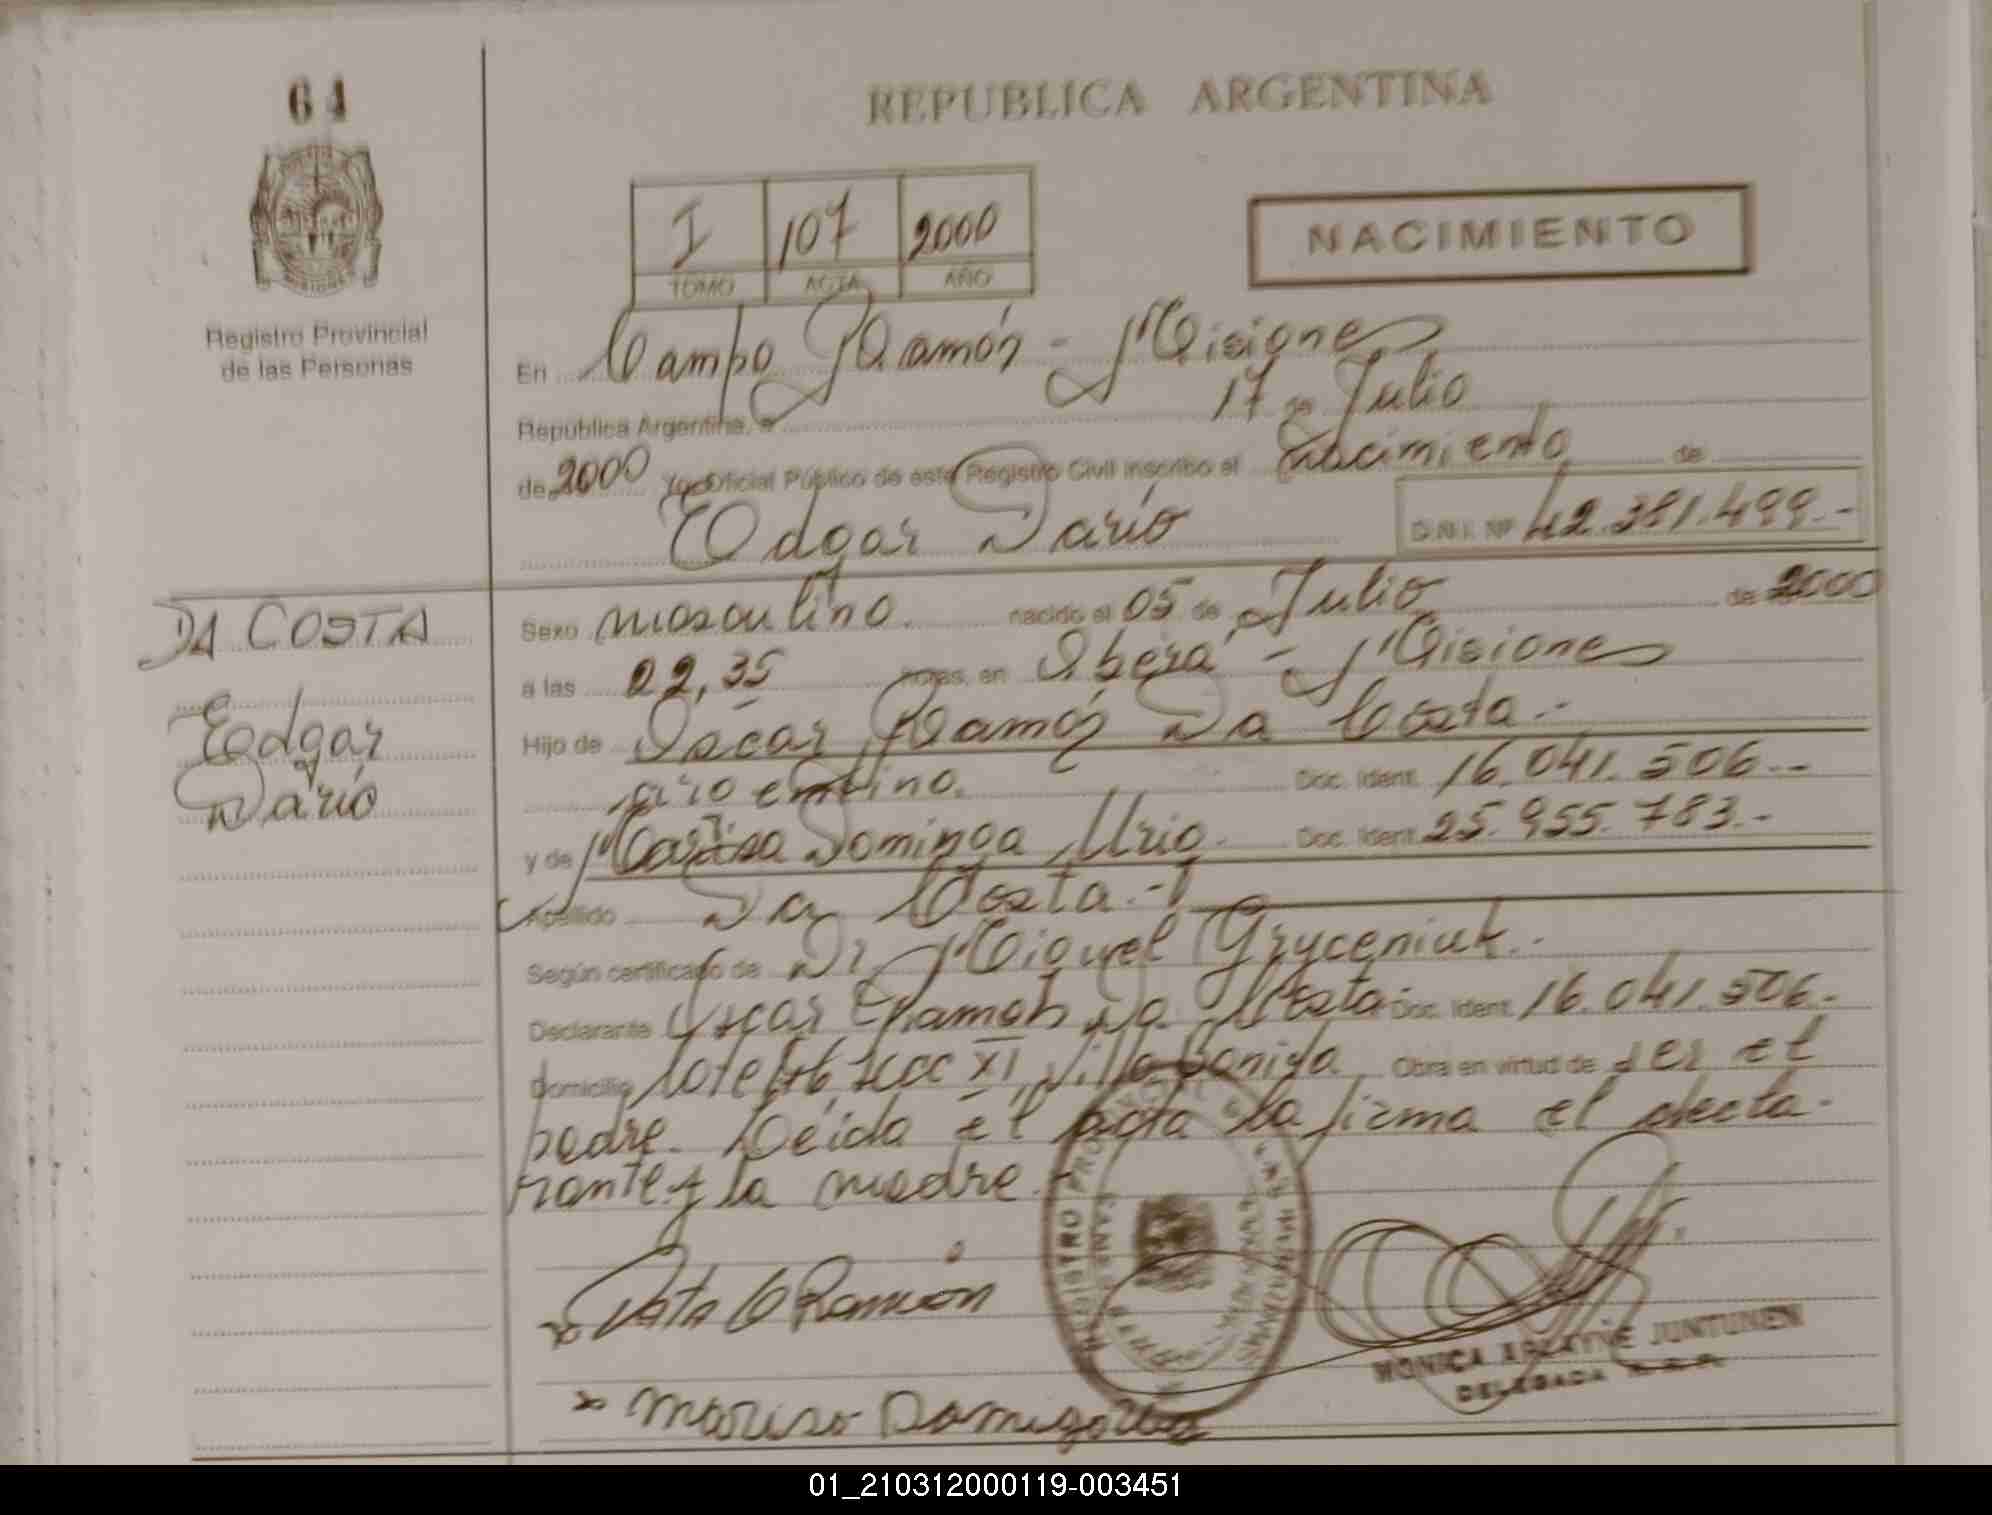 64
REPUBLICA ARGENTINA
I 107 2000
TOMO ACTA AÑO
NACIMIENTO
Registro Provincial
de las Personas
En Campo Ramón - Misiones
República Argentina, a 17 de Julio
de 2000 Yo Oficial Público de este Registro Civil inscribo el Nacimiento de
Edgar Darío D.N.I. Nº 42.381.499.-
DA COSTA
Edgar
Darío
Sexo masculino. nacido el 05 de Julio de 2000
a las 22,35 horas, en Oberá - Misiones
Hijo de Oscar Ramón Da Costa.-
argentino. Doc. Ident. 16.041.506.--
y de Marisa Dominga Doc. Ident. 25.955.783.-
Apellido Da Costa.-
Según certificado de Dr Miguel Gryceniuk.-
Declarante Oscar Ramón Da Costa Doc. Ident. 16.041.506.-
Domicilio Lote XI, Villa Bonita Obra en virtud de ser el
padre. Leída el acta la firma el decla-
rante y la madre.-
x Ramón
MONICA JUNTUNEN
DELEGADA
x Marisa
01_210312000119-003451